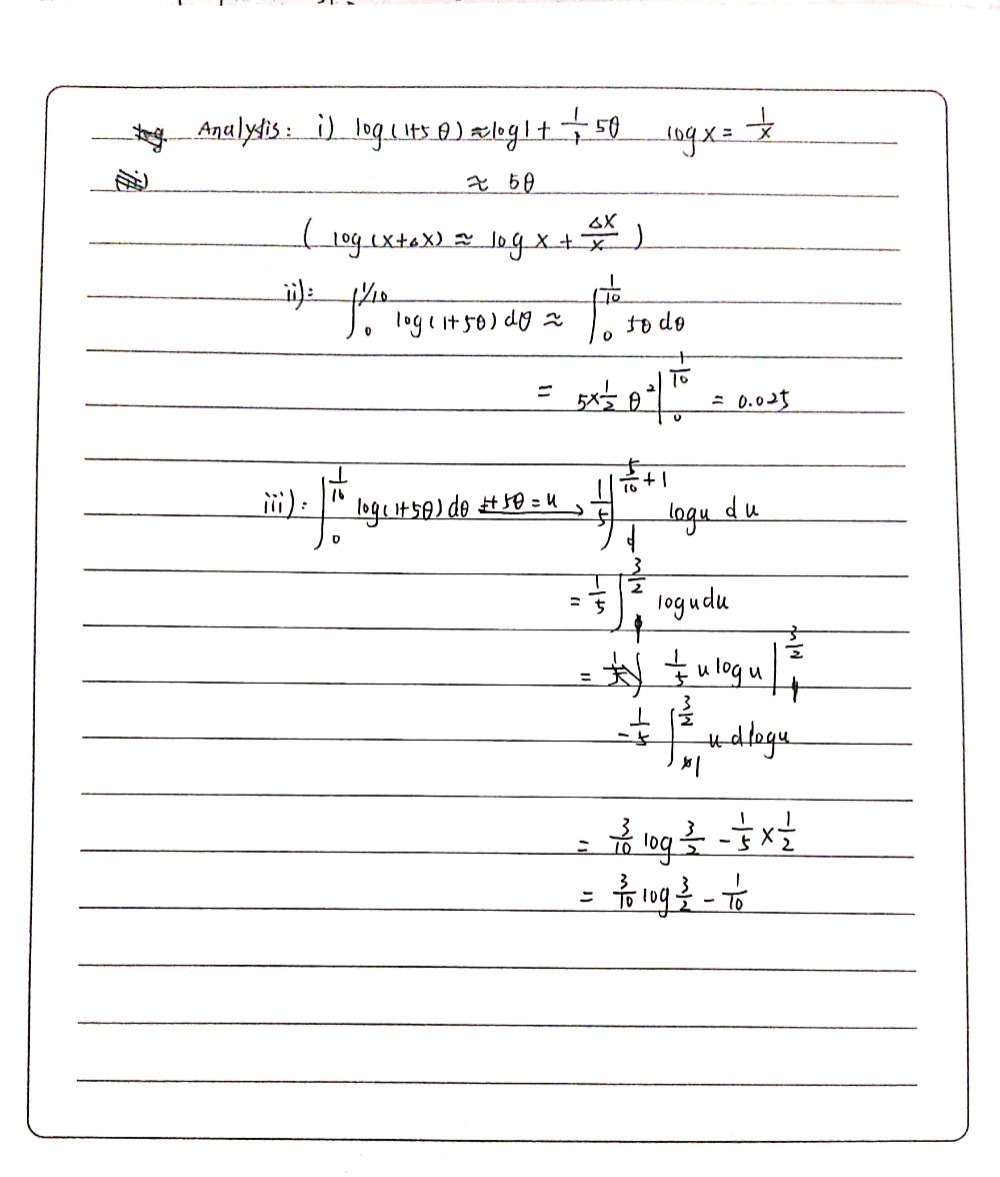 Analysis: i) log(1+5θ) ≈ log1 + 1/1 5θ log x = 1/x
≈ 5θ
( log(x+Δx) ≈ log x + Δx/x )
ii): ∫₀^{1/10} log(1+5θ) dθ ≈ ∫₀^{1/10} 5θ dθ
= 5×1/2 θ² |₀^{1/10} = 0.025
iii): ∫₀^{1/10} log(1+5θ) dθ 1+5θ=u → 1/5 ∫₁^{5/10+1} log u du
= 1/5 ∫₁^{3/2} log u du
= 1/5 u log u |₁^{3/2}
- 1/5 ∫₁^{3/2} u d log u
= 3/10 log 3/2 - 1/5 × 1/2
= 3/10 log 3/2 - 1/10